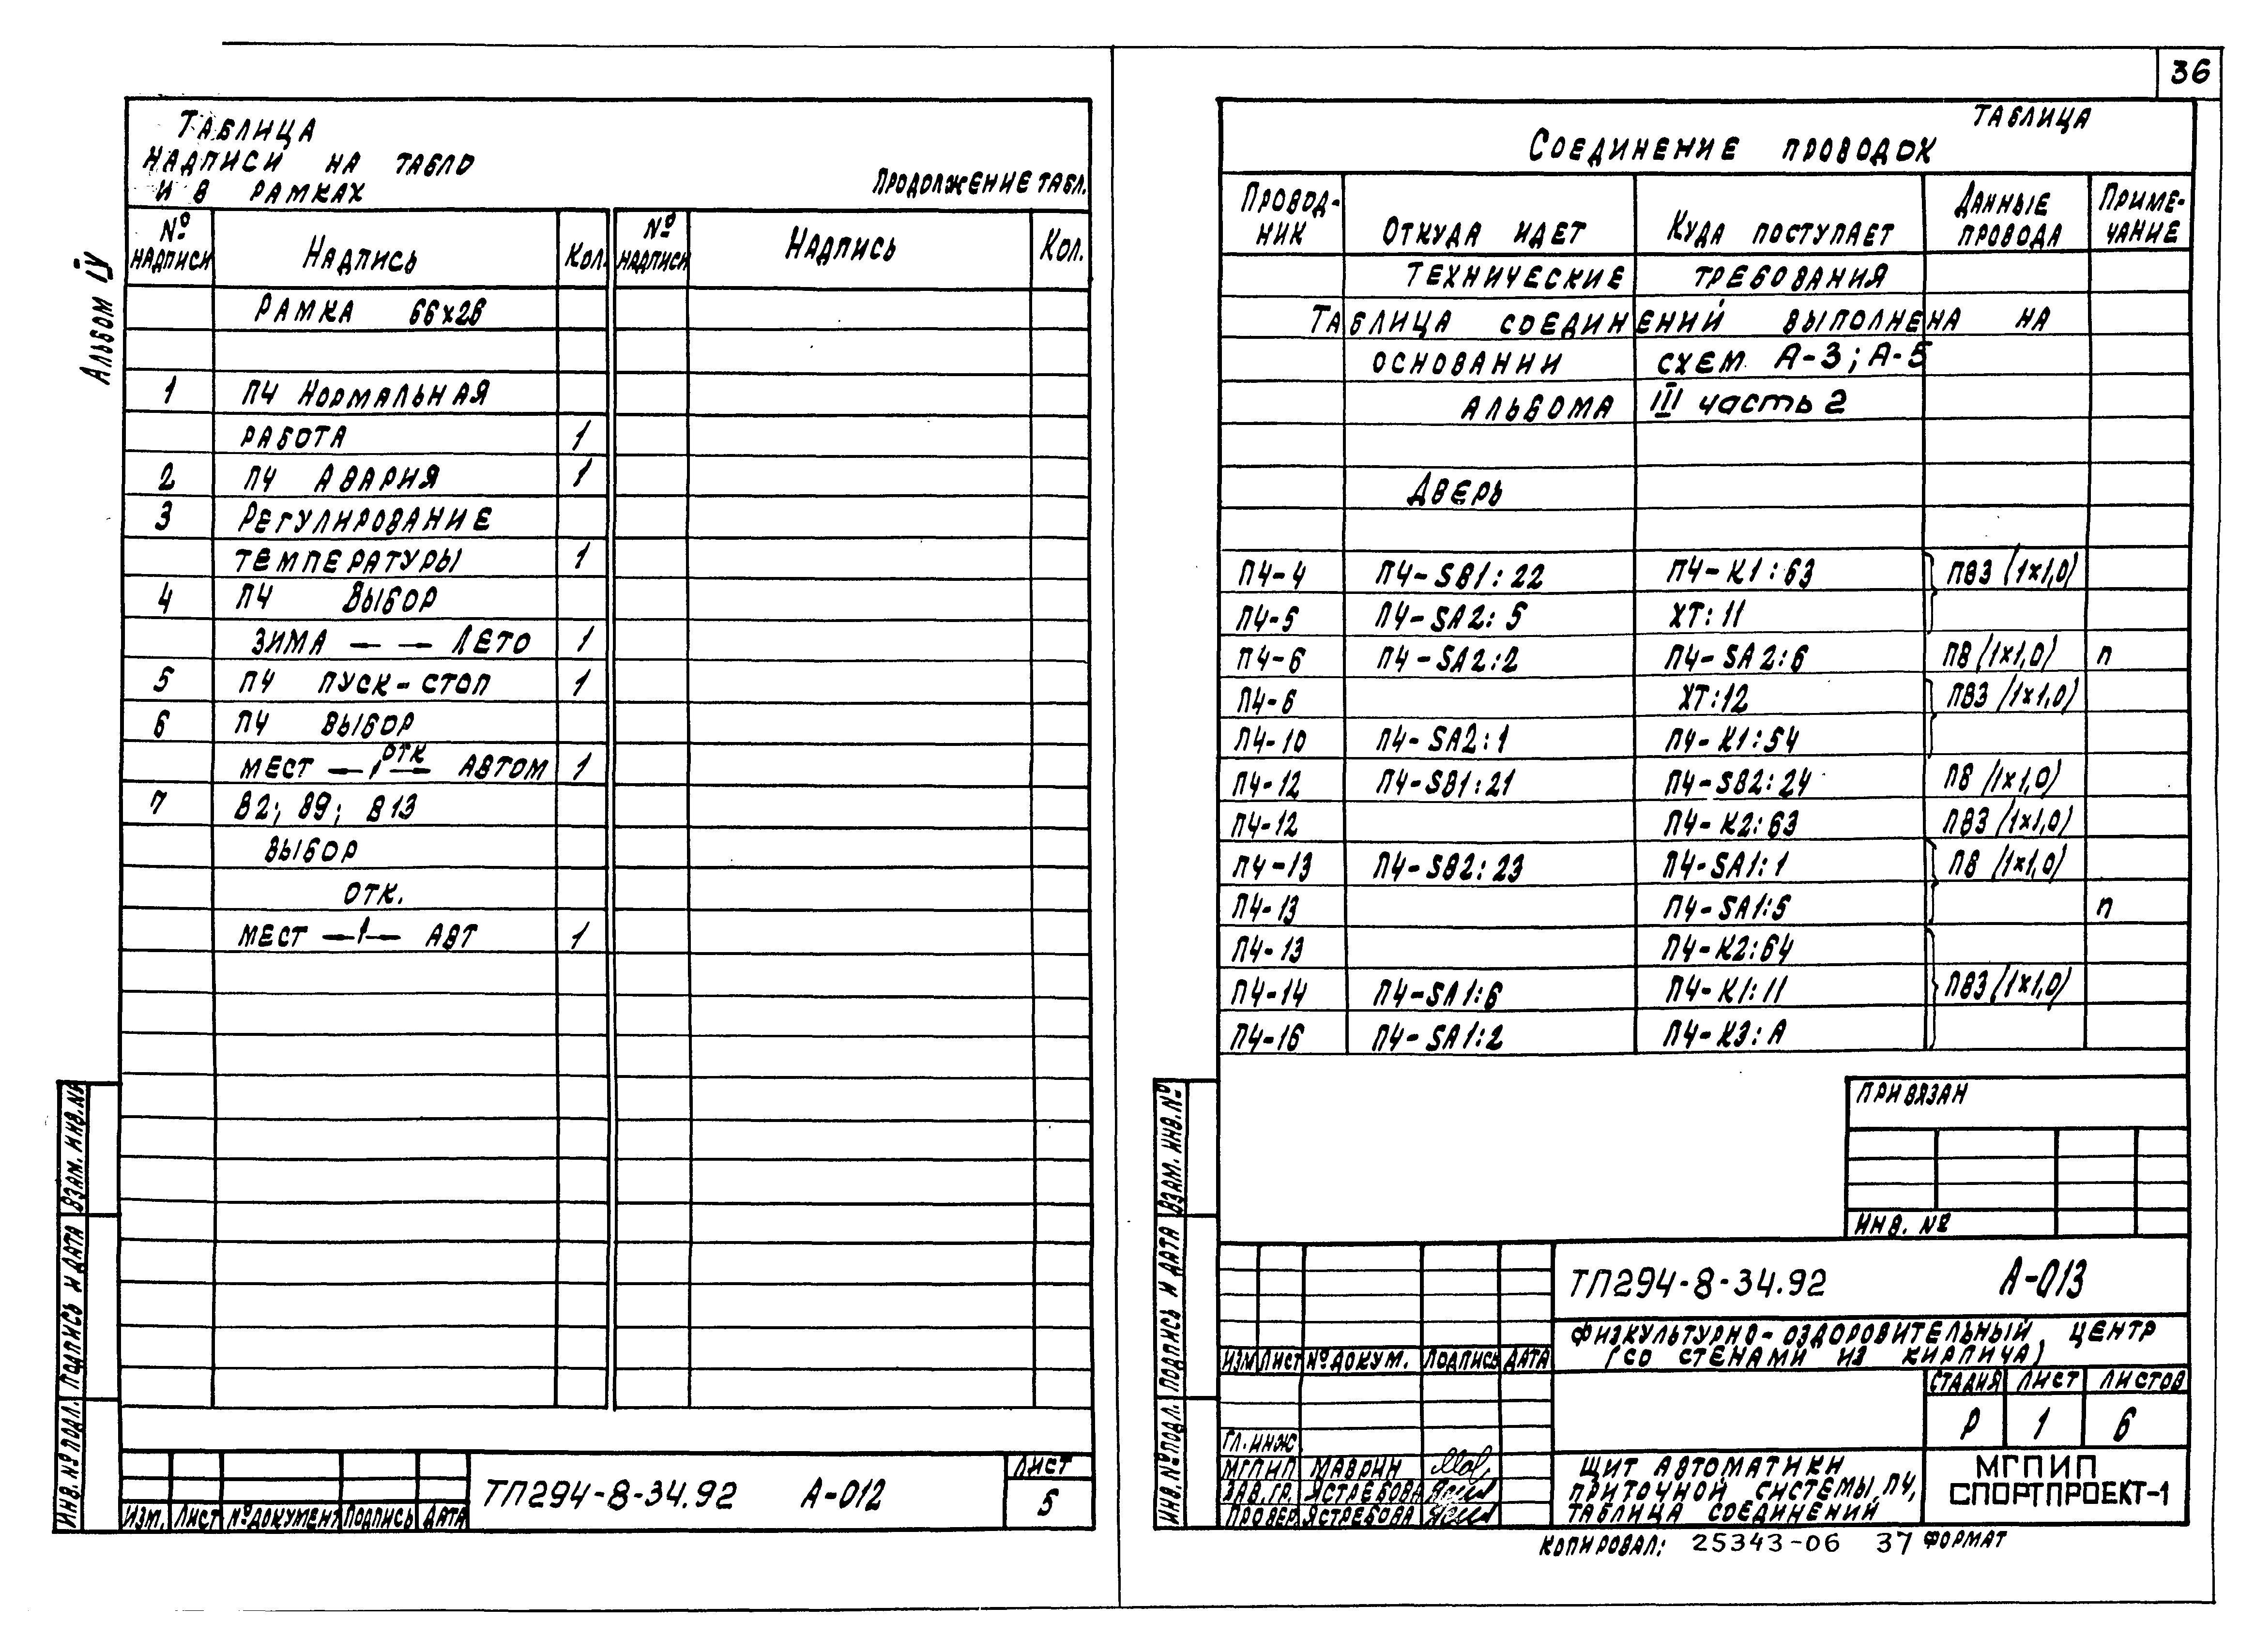 36
Альбом IV
Таблица
надписи на табло
и в рамках
Продолжение табл.
№ надписи Надпись Кол. № надписи Надпись Кол.
Рамка 66х26
1 П4 Нормальная
работа 1
2 П4 Авария 1
3 Регулирование
температуры 1
4 П4 Выбор
зима — — лето 1
5 П4 пуск-стоп 1
6 П4 выбор
отк
мест —1— автом 1
7 В2; В9; В13
выбор
отк.
мест —1— авт 1
Взам. инв. №
Подпись и дата
Инв. № подл.
Изм. Лист № документ Подпись Дата
ТП294-8-34.92 А-012
Лист
5
Таблица
Соединение проводок
Проводник Откуда идет Куда поступает Данные провода Примечание
Технические требования
Таблица соединений выполнена на
основании схем А-3; А-5
альбома III часть 2
Дверь
П4-4 П4-SB1:22 П4-К1:63 ПВ3 (1х1,0)
П4-5 П4-SA2:5 ХТ:11
П4-6 П4-SA2:2 П4-SA2:6 ПВ (1х1,0) п
П4-6 ХТ:12 ПВ3 (1х1,0)
П4-10 П4-SA2:1 П4-К1:54
П4-12 П4-SB1:21 П4-SB2:24 ПВ (1х1,0)
П4-12 П4-К2:63 ПВ3 (1х1,0)
П4-13 П4-SB2:23 П4-SA1:1 ПВ (1х1,0)
П4-13 П4-SA1:5 п
П4-13 П4-К2:64
П4-14 П4-SA1:6 П4-К1:11 ПВ3 (1х1,0)
П4-16 П4-SA1:2 П4-К3:А
Привязан
Инв. №
Взам. инв. №
Подпись и дата
Инв. № подл.
ТП294-8-34.92 А-013
Физкультурно-оздоровительный центр
(со стенами из кирпича)
Изм Лист № докум. Подпись Дата
Стадия Лист Листов
Р 1 6
Гл. инж
МГПИП Маврин
Зав. гр. Ястребова
Провер Ястребова
Щит автоматики
приточной системы П4,
таблица соединений
МГПИП
СПОРТПРОЕКТ-1
Копировал: 25343-06 37 Формат